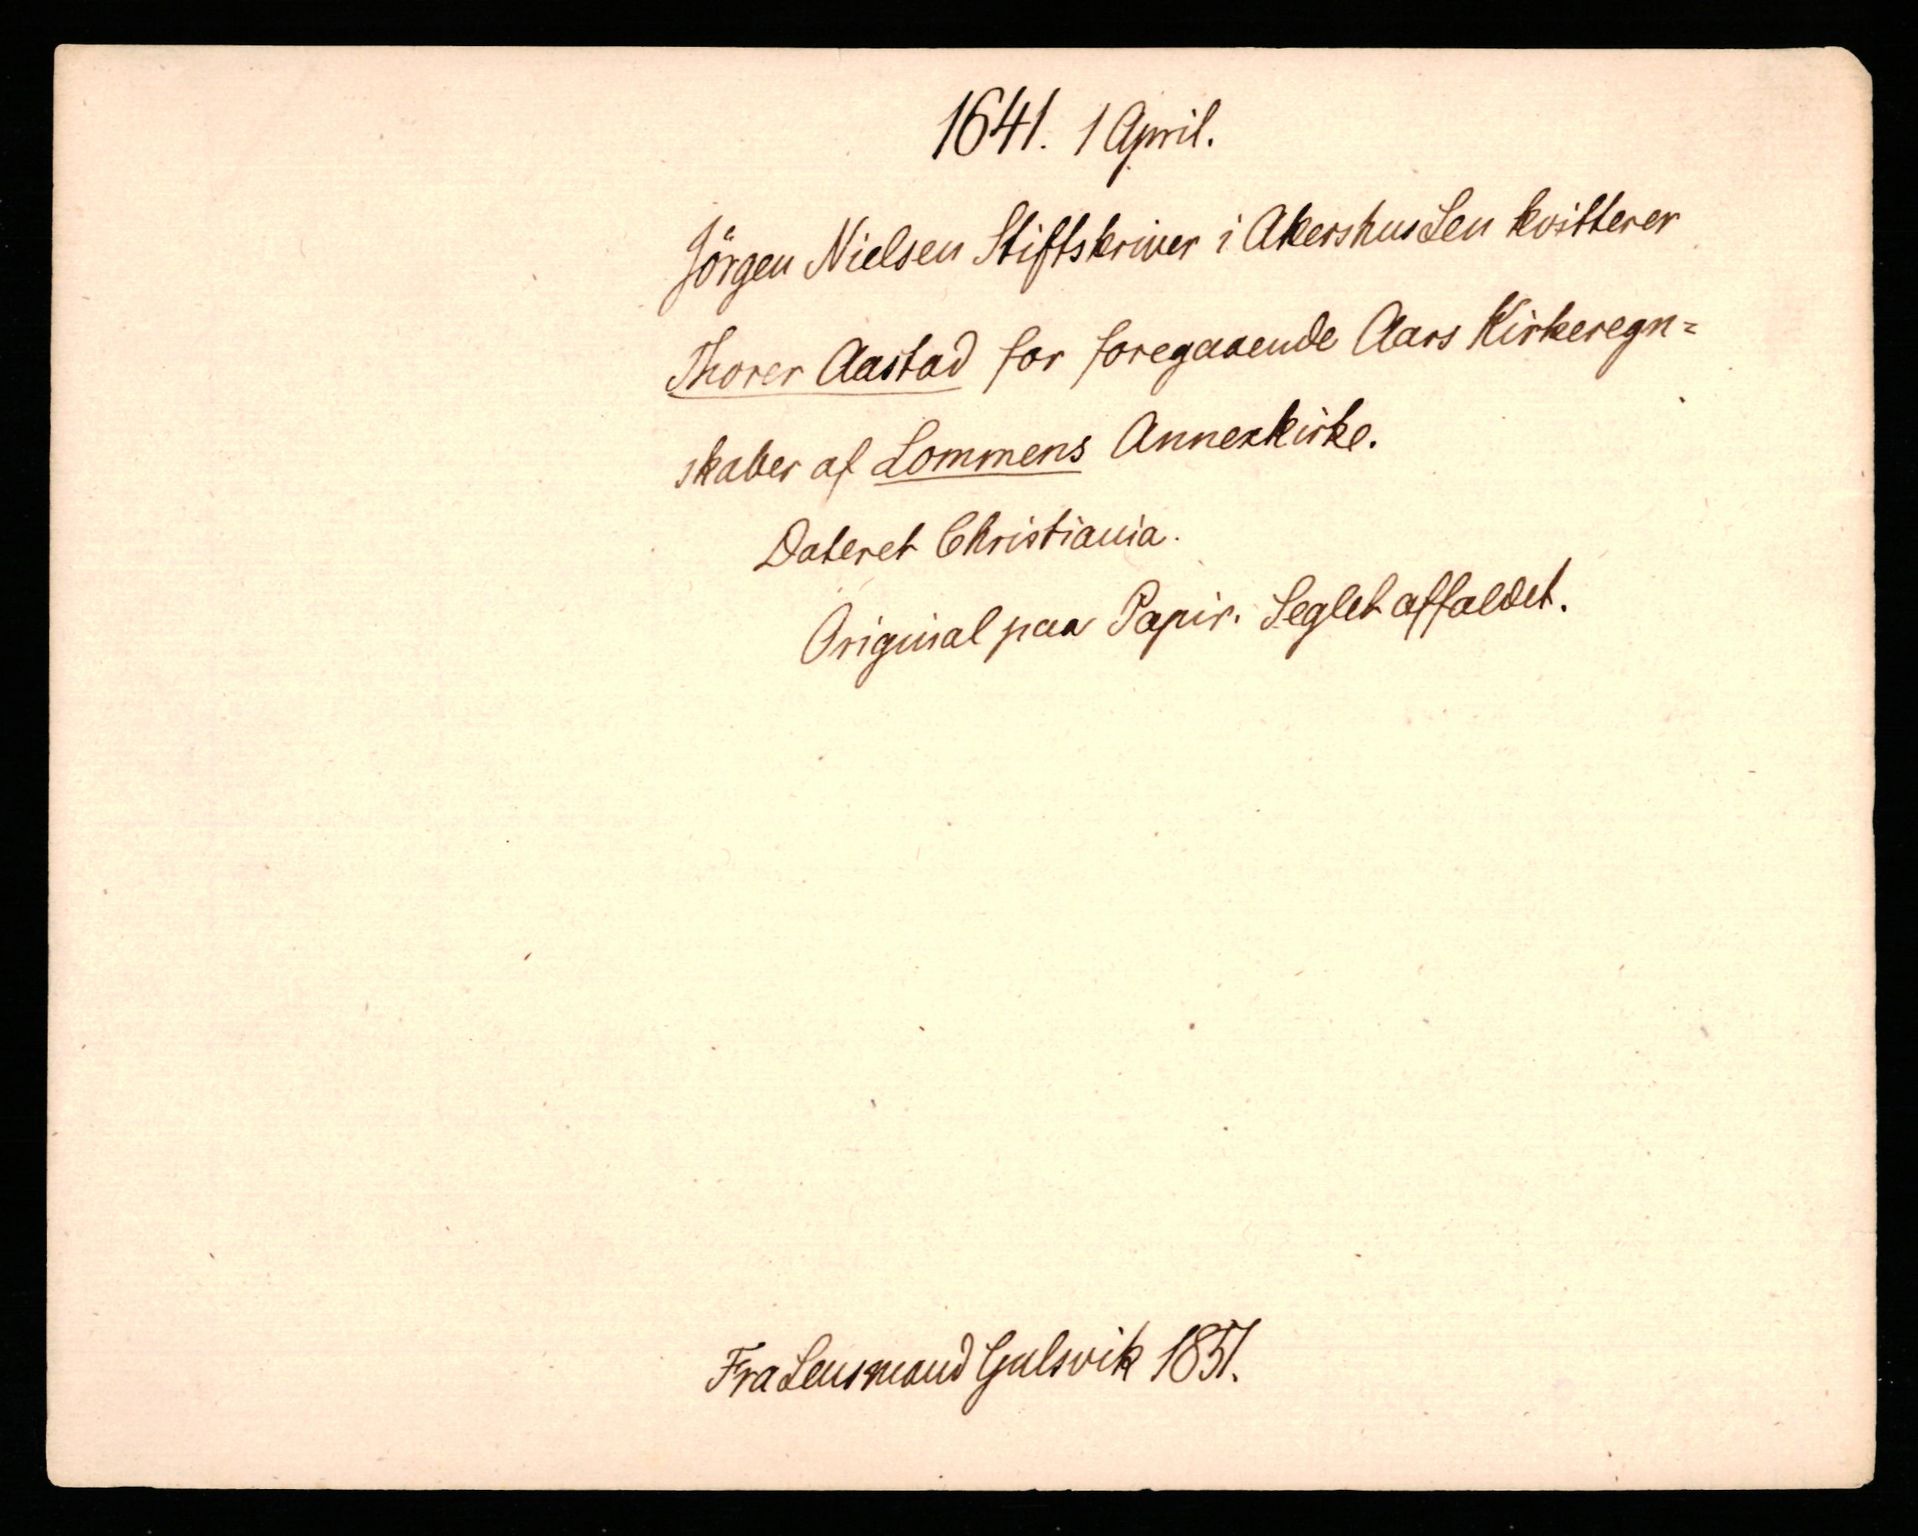 1641. 1 April.
Jörgen Nielsen Stiftskriver i Akershus Len kvitterer
Thorer Aastad for foregaaende Aars Kirkeregn=
skaber af Lommens Annexkirke.
Dateret Christiania.
Original paa Papir. Seglet affaldet.
Fra Lensmand Gulsvik 1851.